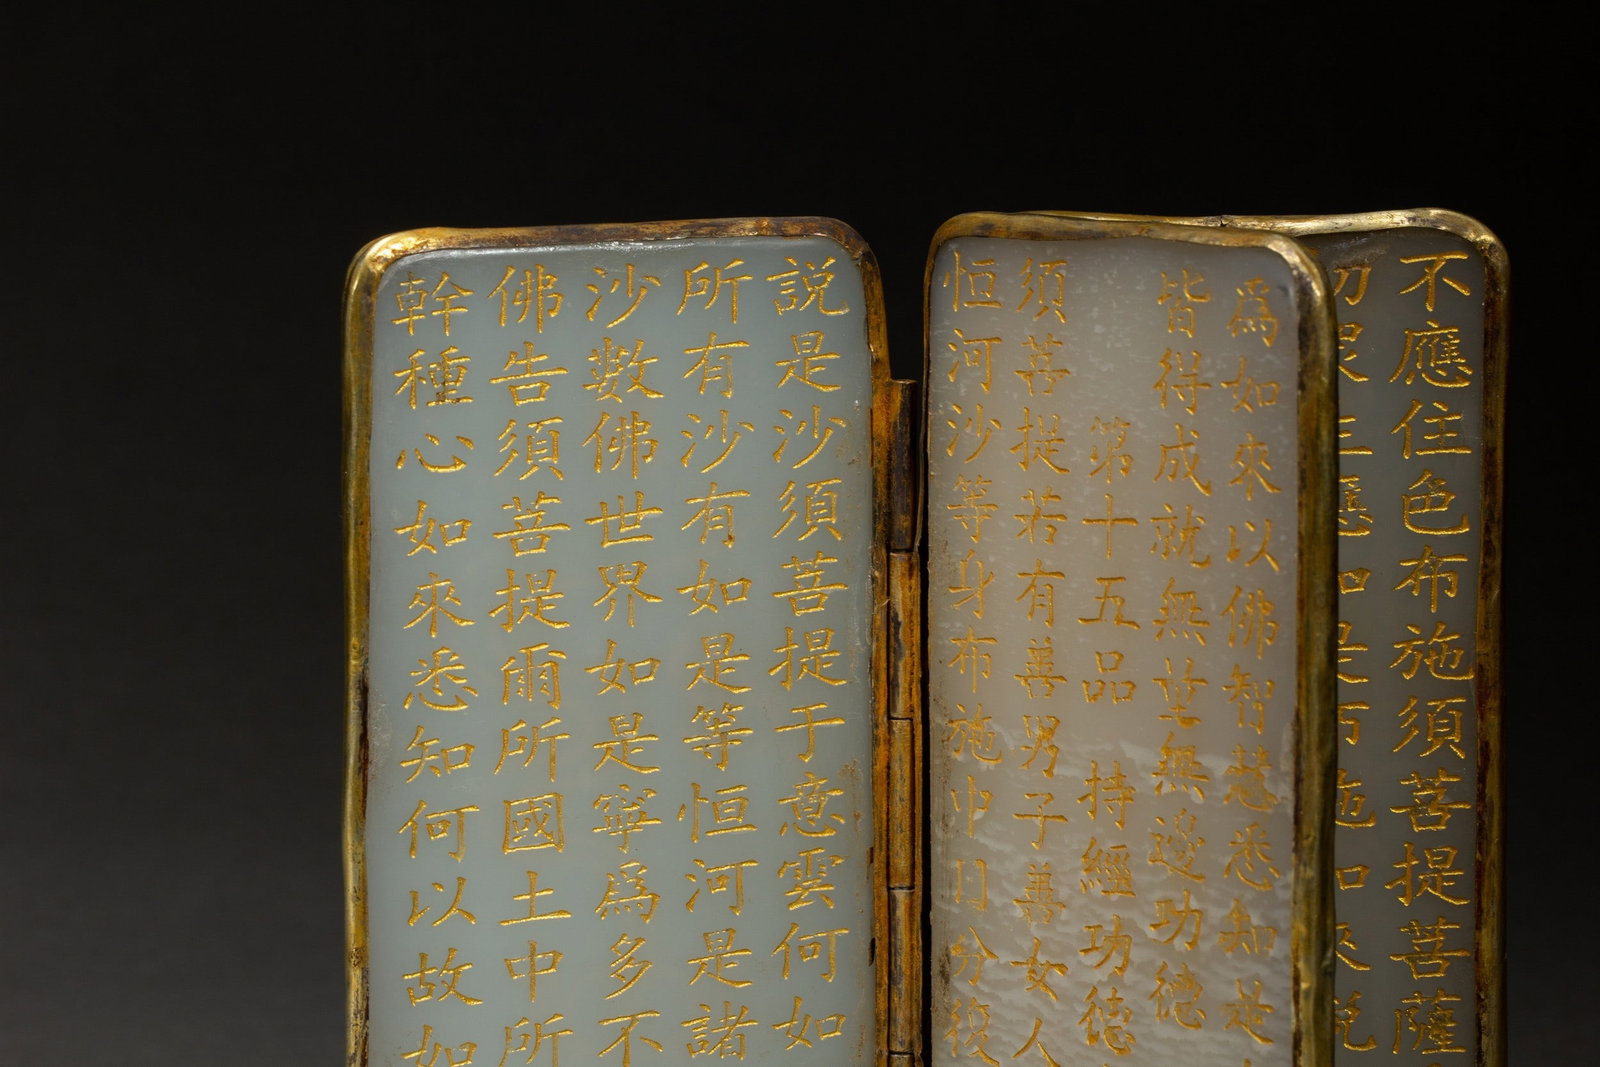 不應住色布施須菩提菩薩
爲如來以佛智慧悉知是
皆得成就無無邊功德
第十五品 持經功德
須菩提若有善男子善女人
恒河沙等身布施中日分復
説是沙須菩提于意雲何如
所有沙有如是等恒河是諸
沙數佛世界如是寧爲多不
佛告須菩提爾所國土中所
幹種心如來悉知何以故如